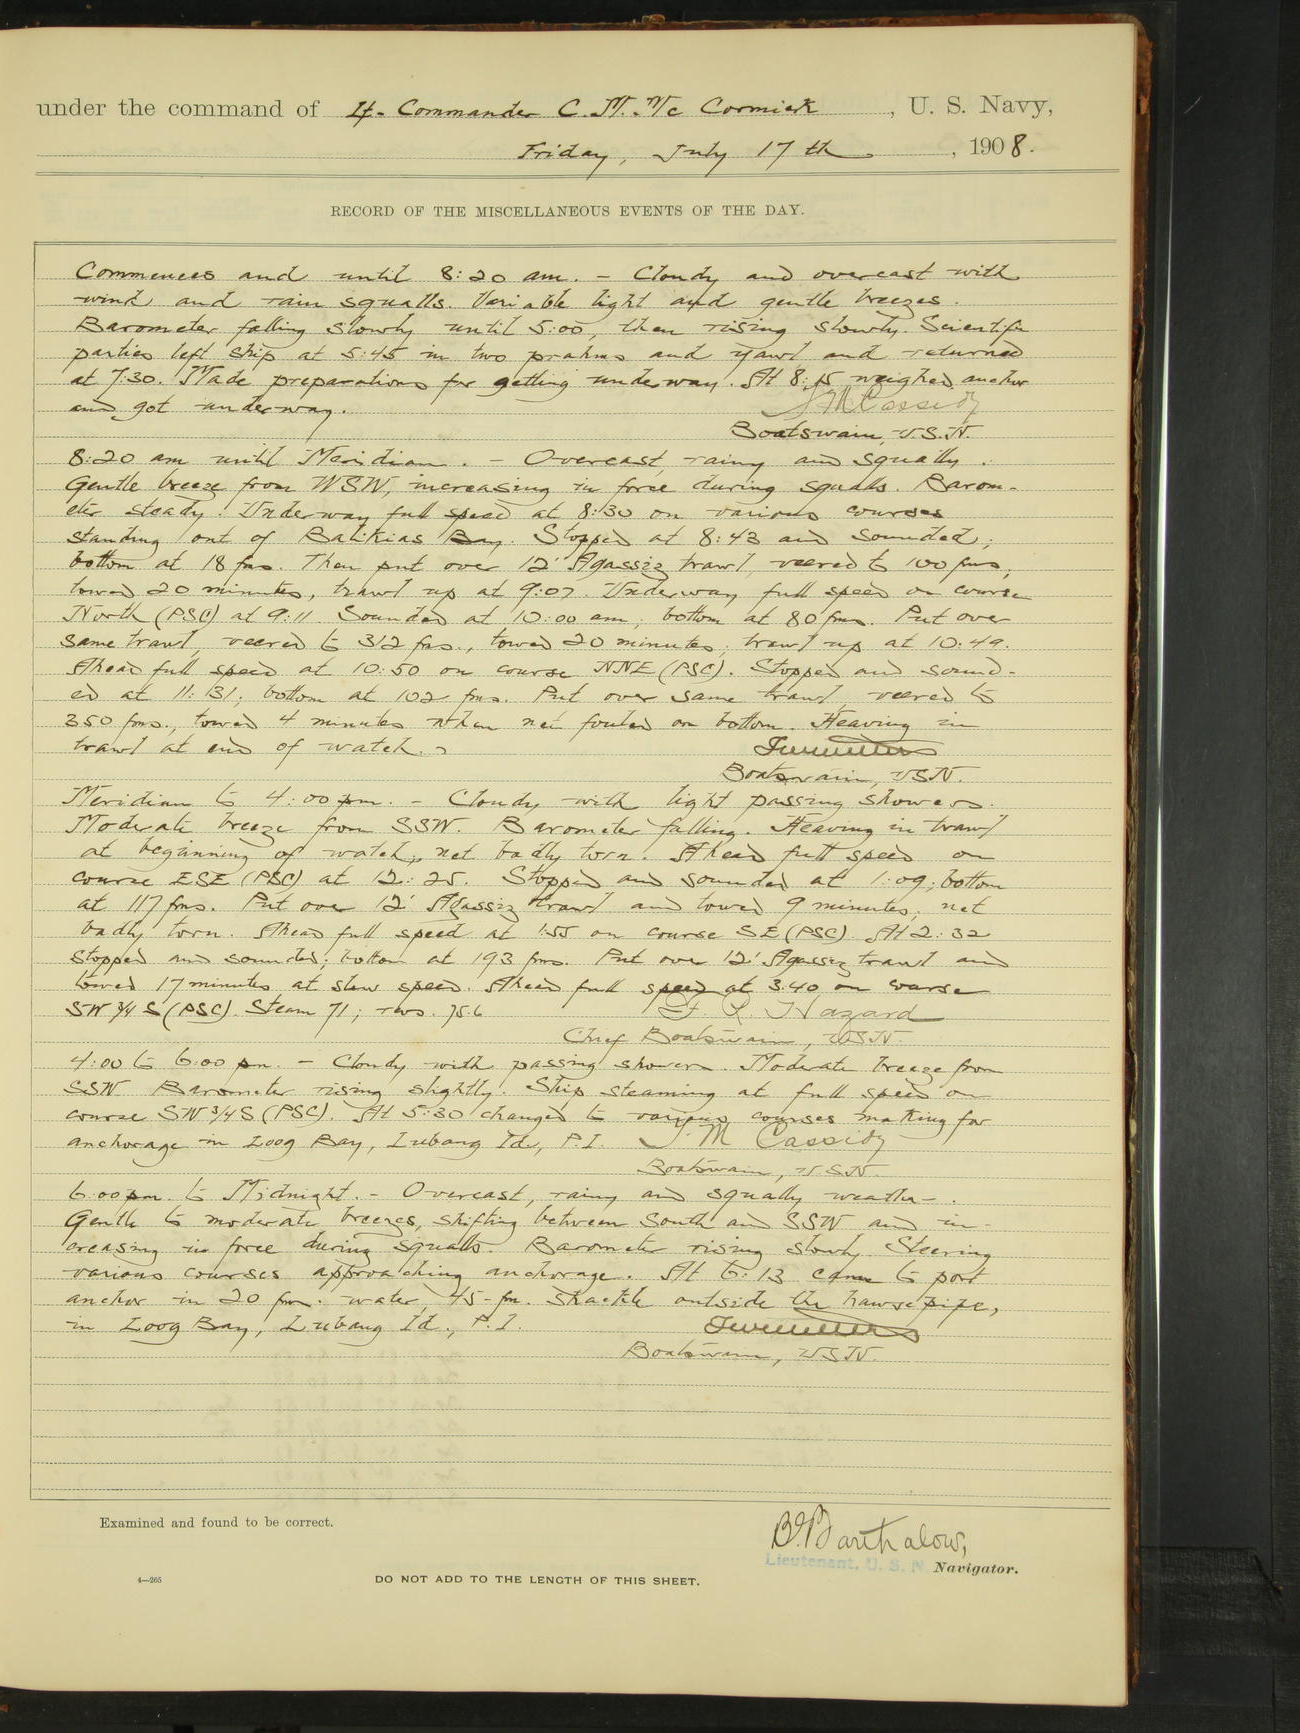 under the command of Lt. Commander C. M. Mc Cormick, U. S. Navy,
Friday, July 17th, 1908.
RECORD OF THE MISCELLANEOUS EVENTS OF THE DAY.
Commences and until 8:20 am. - Cloudy and overcast with
wind and rain squalls. Variable light and gentle breezes.
Barometer falling slowly until 5:00, then rising slowly. Scientific
parties left ship at 5:45 in two prahms and yawl and returned
at 7:30. Made preparations for getting underway. At 8:15 weighed anchor
and got underway. J M Cassidy
Boatswain, U.S.N.
8:20 am until Meridian. - Overcast, rainy and squally.
Gentle breeze from WSW, increasing in force during squalls. Barom-
eter steady. Underway full speed at 8:30 on various courses
standing out of Balikias Bay. Stopped at 8:43 and sounded;
bottom at 18 fms. Then put over 12' Agassiz trawl, veered to 100 fms,
towed 20 minutes, trawl up at 9:07. Underway full speed on course
North (PSC) at 9:11. Sounded at 10:00 am, bottom at 80 fms. Put over
same trawl, veered to 312 fms., towed 20 minutes; trawl up at 10:49.
Ahead full speed at 10:50 on course NNE (PSC). Stopped and sound-
ed at 11:31; bottom at 102 fms. Put over same trawl veered to
350 fms., towed 4 minutes when net fouled on bottom. Heaving in
trawl at end of watch.
Boatswain, USN.
Meridian to 4:00 pm. - Cloudy with light passing showers.
Moderate breeze from SSW. Barometer falling. Heaving in trawl
at beginning of watch, net badly torn. Ahead full speed on
course ESE (PSC) at 12:25. Stopped and sounded at 1:09; bottom
at 117 fms. Put over 12' Agassiz trawl and towed 9 minutes; net
badly torn. Ahead full speed at 1:55 on course SE (PSC) At 2:32
stopped and sounded; bottom at 193 fms. Put over 12' Agassiz trawl and
towed 17 minutes at slow speed. Ahead full speed at 3:40 on course
SW 3/4 S (PSC). Steam 71; revs. 75.6 Hazard
Chief Boatswain, USN.
4:00 to 6:00 pm. - Cloudy with passing showers. Moderate breeze from
SSW. Barometer rising slightly. Ship steaming at full speed on
course SW 3/4 S (PSC). At 5:30 changed to various courses making for
anchorage in Loog Bay, Lubang Id., P.I. J. M Cassidy
Boatswain, USN.
6:00 pm. to Midnight. - Overcast, rainy and squally weather.
Gentle to moderate breezes, shifting between South and SSW and in-
creasing in force during squalls. Barometer rising slowly. Steering
various courses approaching anchorage. At 6:13 came to port
anchor in 20 fms. water, 45-fm. shackle outside the hawse pipe,
in Loog Bay, Lubang Id., P.I.
Boatswain, USN.
Examined and found to be correct.
Barthalow,
Lieutenant, U. S. N. Navigator.
4—265
DO NOT ADD TO THE LENGTH OF THIS SHEET.